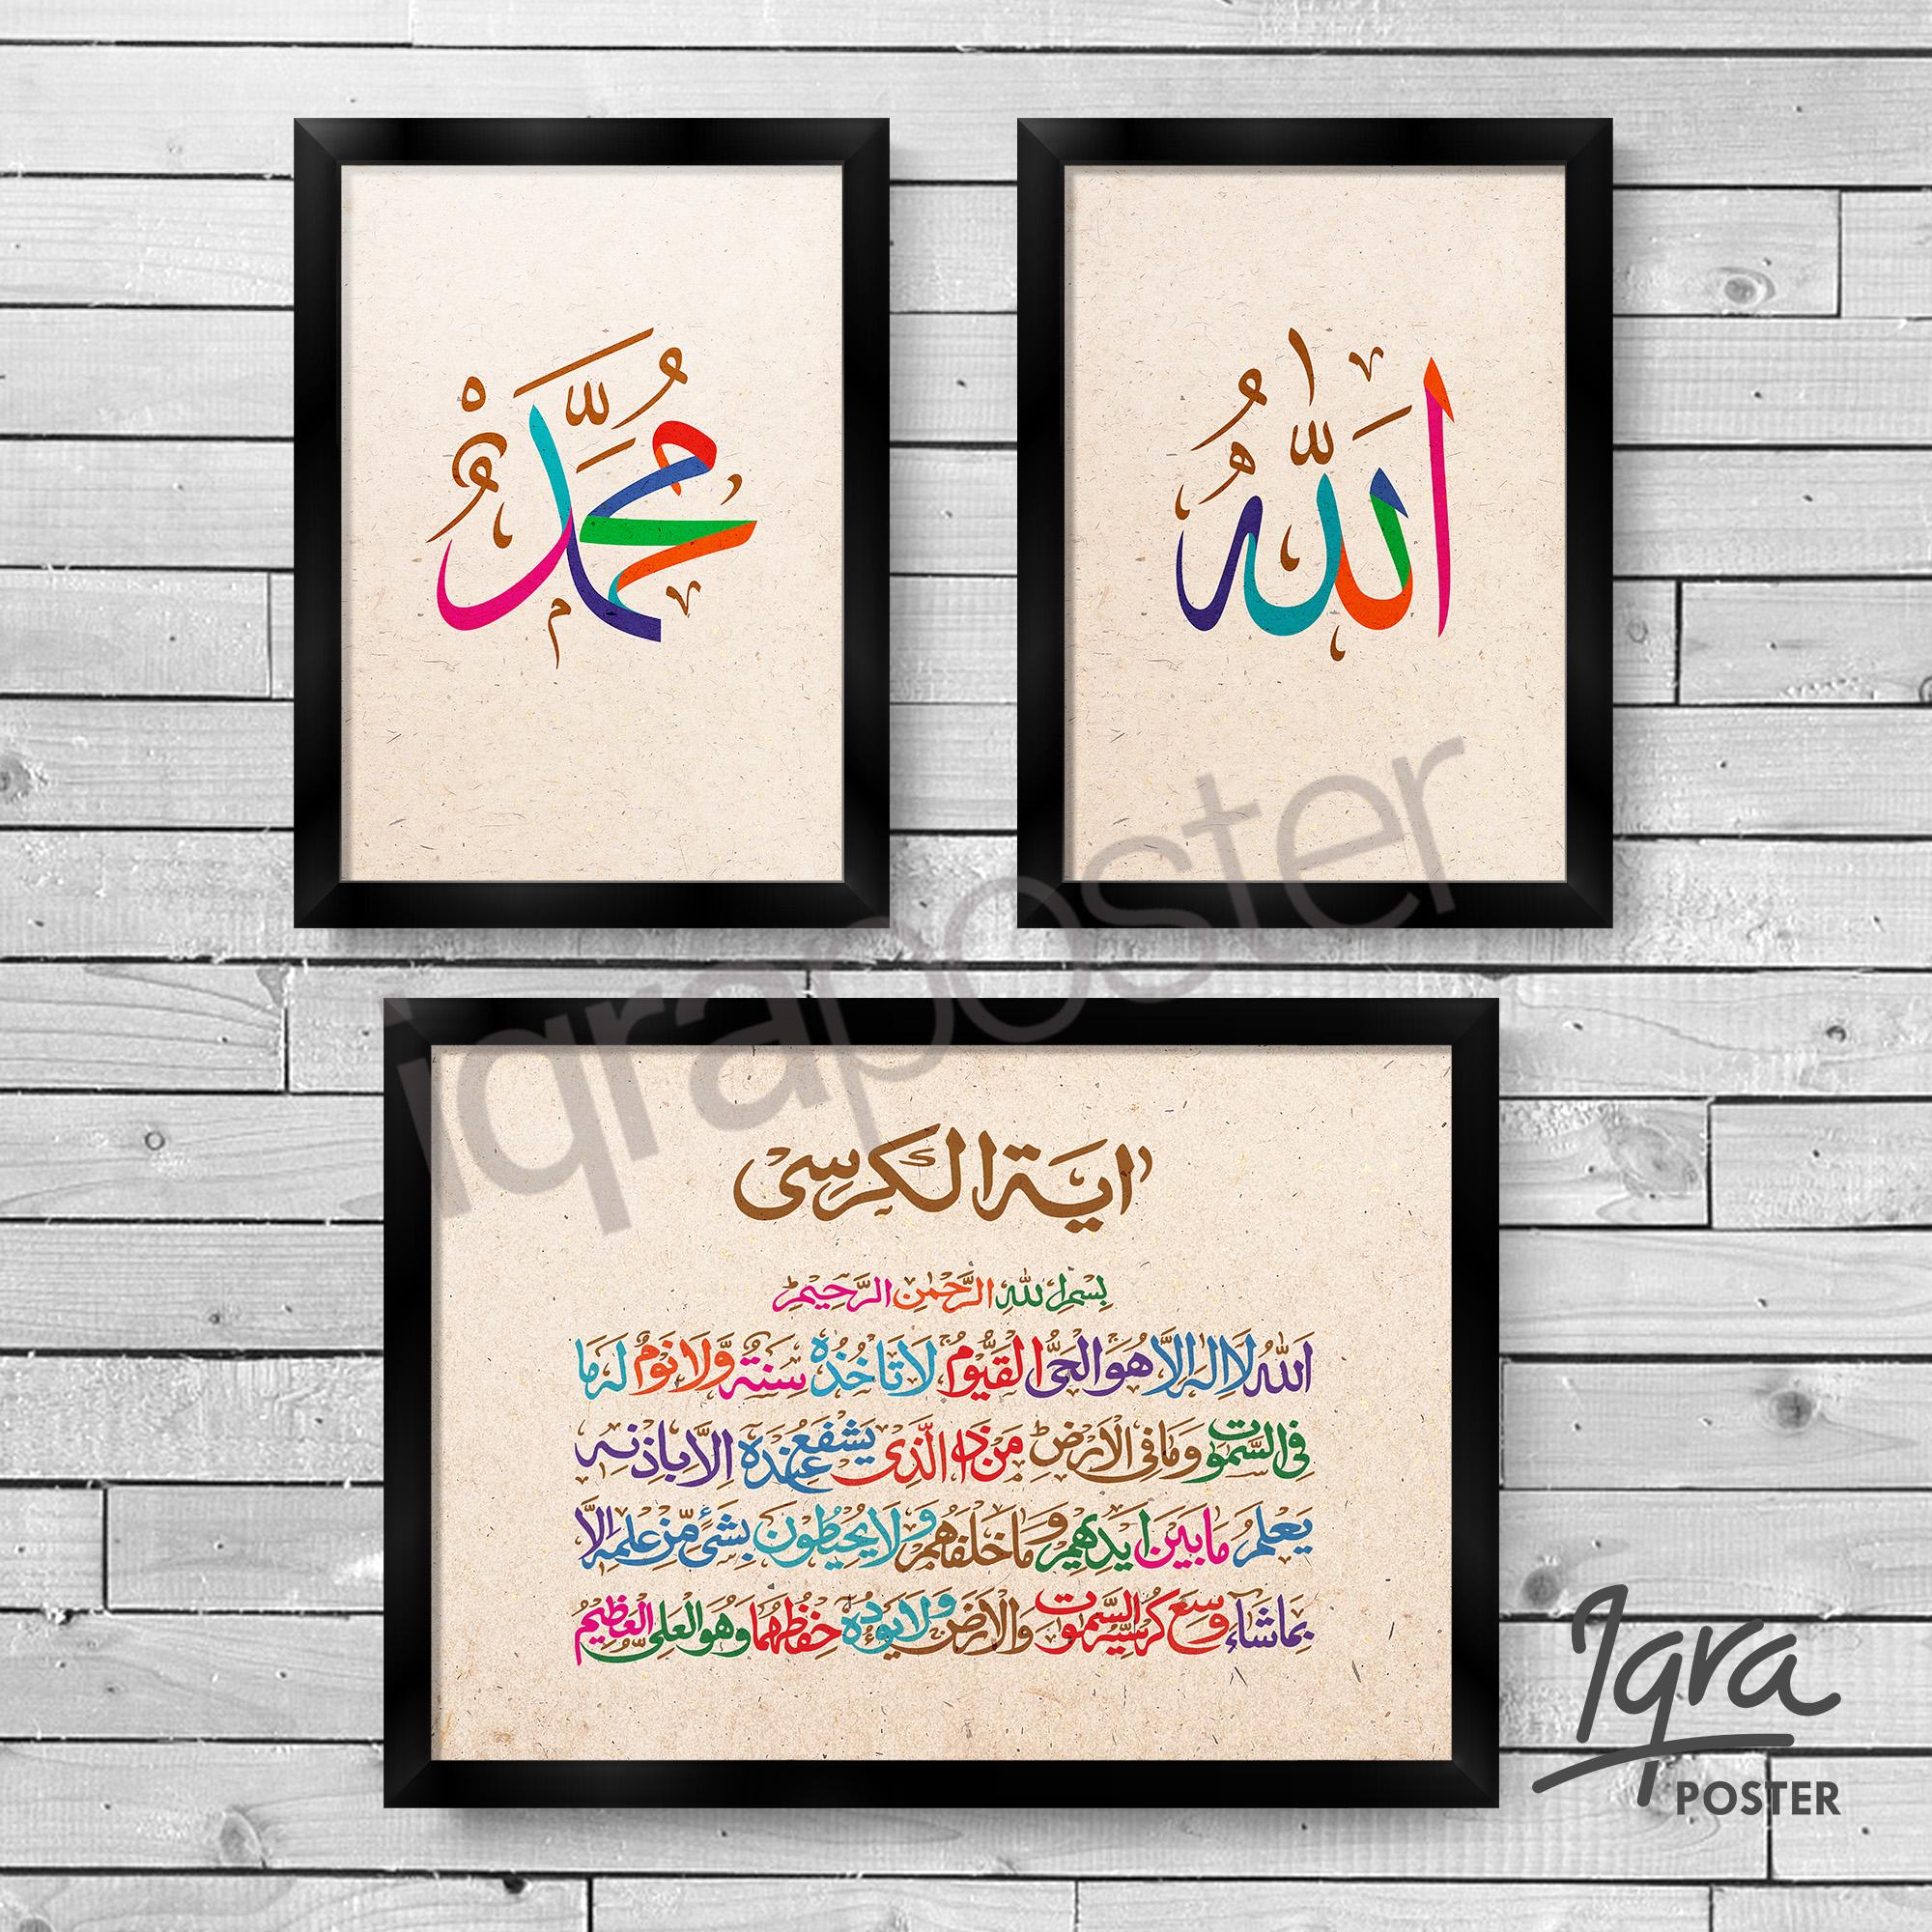 محمد
الله
اية الكرسى
بسم الله الرحمن الرحيم
الله لا اله الا هو الحى القيوم لا تاخذه سنة ولا نوم له ما
فى السموت وما فى الارض من ذا الذى يشفع عنده الا باذنه
يعلم ما بين ايديهم وما خلفهم ولا يحيطون بشئ من علمه الا
بما شاء وسع كرسيه السموت والارض ولا يؤده حفظهما وهو العلى العظيم
iqraposter
Iqra
POSTER